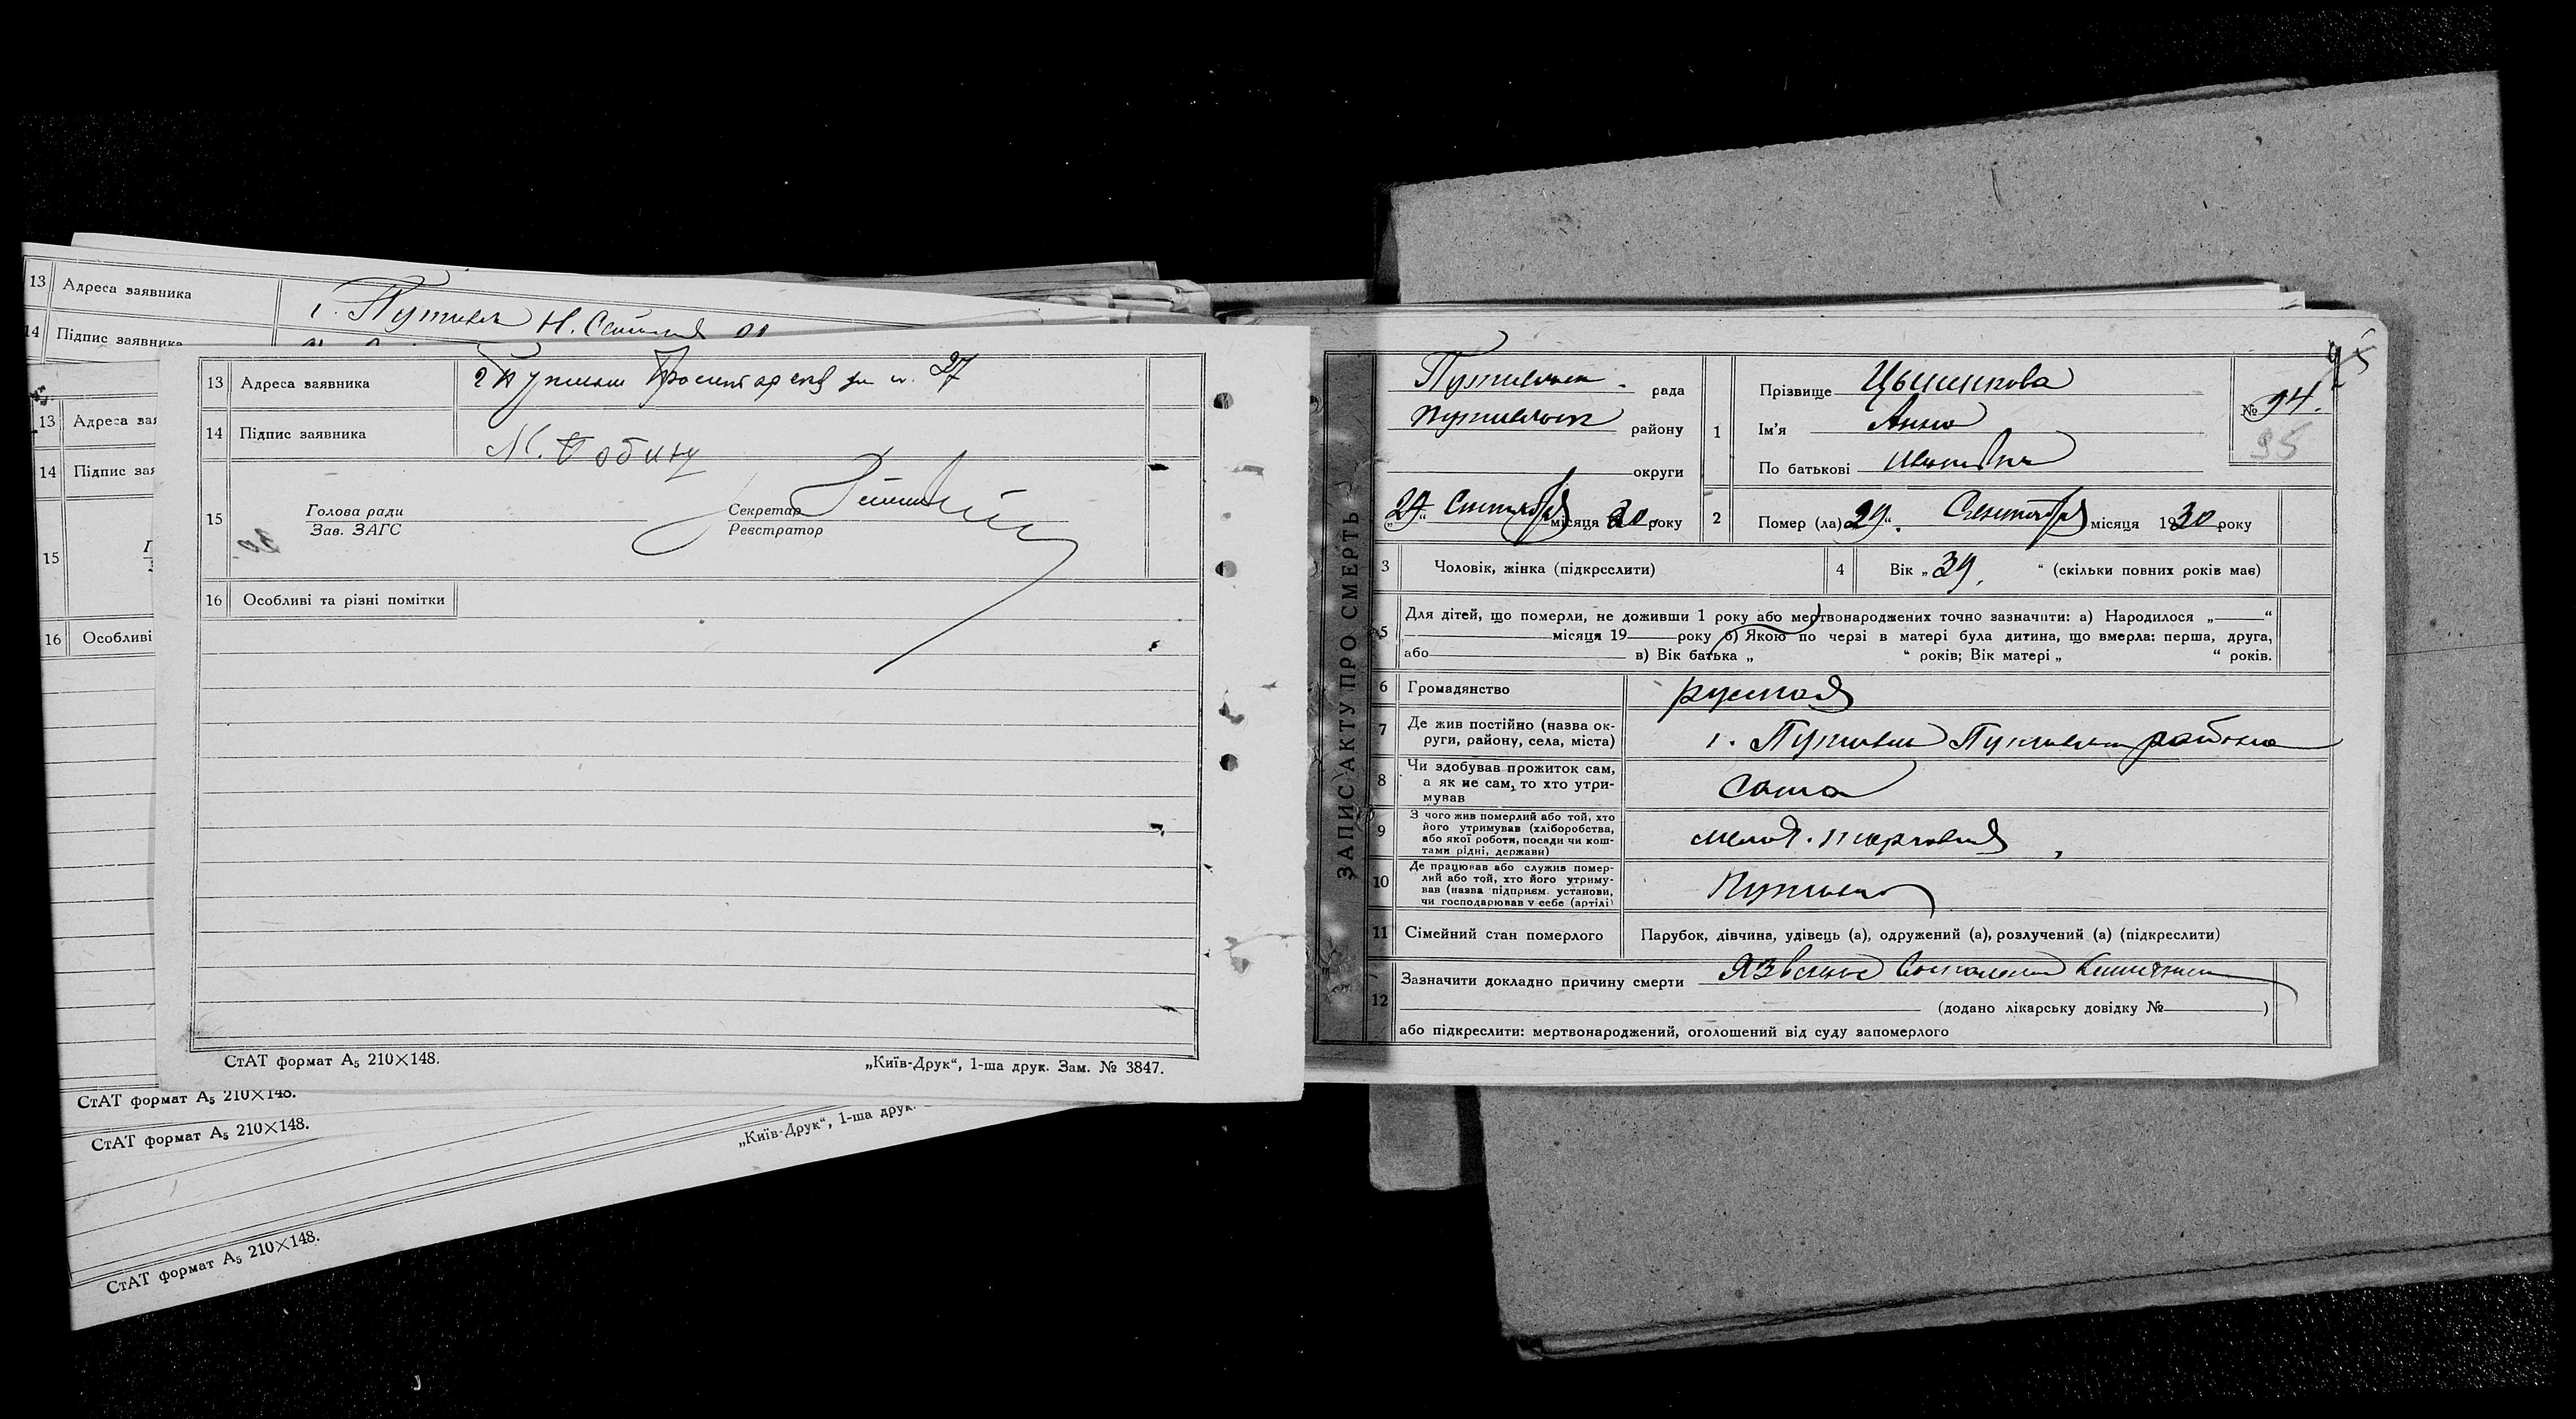 13 Адреса заявника
г. Путивль Н.
14 Підпис заявника
13 Адреса зая
14 Підпис зая
15
16 Особливі
13 Адреса заявника г Путивль Пролетарская ул №. 27
14 Підпис заявника М.
15 Голова ради
Зав. ЗАГС
Секретар
Реєстратор
30
16 Особливі та різні помітки
СтАТ формат А5 210×148.
„Київ-Друк“, 1-ша друк. Зам. № 3847.
СтАТ формат А5 210×148.
СтАТ формат А5 210×148.
„Київ-Друк“, 1-ша друк.
СтАТ формат А5 210×148.
ЗАПИС АКТУ ПРО СМЕРТЬ
Путивльск. рада
Путивльск району
округи
„29“ Сентября місяця 30 року
1 Прізвище Цышнкова
Ім'я Анна
По батькові Ивановна
№ 94.
95
2 Помер (ла) 29“. Сентября місяця 1930 року
3 Чоловік, жінка (підкреслити)
4 Вік „39, “ (скільки повних років має)
5 Для дітей, що померли, не доживши 1 року або мертвонароджених точно зазначити: а) Народилося „ “
місяця 19 року б) Якою по черзі в матері була дитина, що вмерла: перша, друга,
або в) Вік батька „ “ років; Вік матері „ “ років.
6 Громадянство русская
7 Де жив постійно (назва ок-
руги, району, села, міста) г. Путивль Путивльск района
8 Чи здобував прожиток сам,
а як не сам, то хто утри-
мував сама
9 З чого жив померлий або той, хто
його утримував (хліборобства,
або якої роботи, посади чи кош-
тами рідні, держави) мелоч. торговля
10 Де працював або служив помер-
лий або той, хто його утриму-
вав (назва підприєм. установи,
чи господарював у себе (артілі) Путивль
11 Сімейний стан померлого Парубок, дівчина, удівець (а), одружений (а), розлучений (а) (підкреслити)
12 Зазначити докладно причину смерти Язвенное воспаление кишечника
(додано лікарську довідку № )
або підкреслити: мертвонароджений, оголошений від суду запомерлого